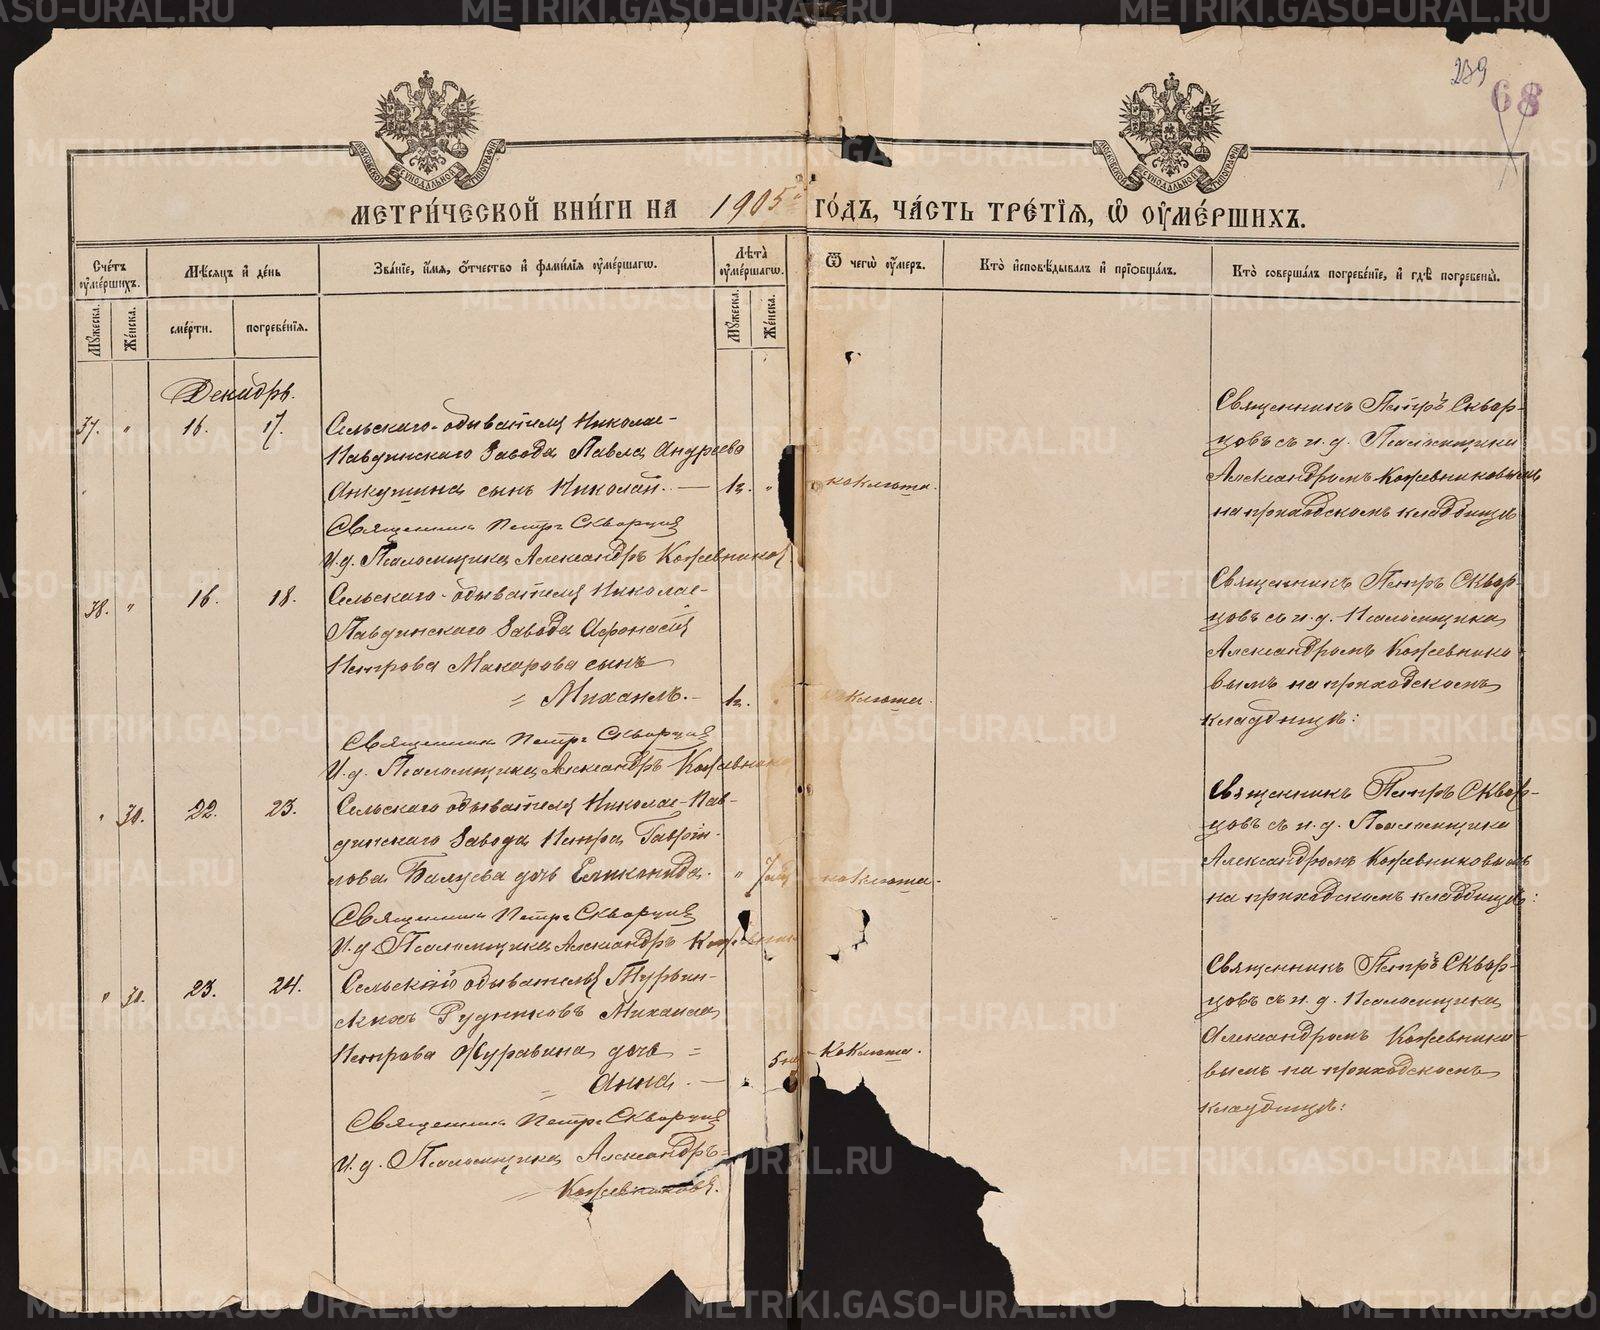 289
68
МОСКОВСКОЙ СѴНОДАЛЬНОЙ ТИПОГРАФІИ
МОСКОВСКОЙ СѴНОДАЛЬНОЙ ТИПОГРАФІИ
МЕТРИ́ЧЕСКОЙ КНИ́ГИ НА 1905 ГО́ДЪ, ЧА́СТЬ ТРЕ́ТІѦ, Ѡ҆ ОУ҆МЕ́РШИХЪ.
Сче́тъ оу҆ме́ршихъ.
Мѣ́сѧцъ и҆ де́нь
Зва́нїе, и҆́мѧ, ѻ҆́тчество и҆ фами́лїѧ оу҆ме́ршагѡ.
Лѣ́та оу҆ме́ршагѡ.
Ѿ чегѡ̀ оу҆́меръ.
Кто̀ и҆сповѣ́дывалъ и҆ прїѡбща́лъ.
Кто̀ соверша́лъ погребе́нїе, и҆ гдѣ̀ погребены̀.
Мꙋ́жеска.
Же́нска.
сме́рти.
погребе́нїѧ.
Мꙋ́жеска.
Же́нска.
Декабрь.
37. " 16. 17. Сельскаго обывателя Николае-
Павдинскаго Завода Павла Андреева
Анкушина сынъ Николай. — "
коклюша.
Священникъ Петръ Скворцовъ
И. д. Псаломщика Александръ Кожевниковъ
Священникъ Петръ Сквор-
цовъ съ и. д. Псаломщика
Александромъ Кожевниковымъ
на приходскомъ кладбищѣ
38. " 16. 18. Сельскаго обывателя Николае-
Павдинскаго Завода Афонасія
Петрова Макарова сынъ
= Михаилъ. —
коклюша.
Священникъ Петръ Скворцовъ
И. д. Псаломщика Александръ Кожевников
Священникъ Петръ Сквор-
цовъ съ и. д. Псаломщика
Александромъ Кожевнико-
вымъ на приходскомъ
кладбищѣ:
" 22. 23. Сельскаго обывателя Николае-Пав-
динскаго Завода Петра Гаврiи-
лова Балуева дочь Гликонида. "
коклюша.
Священникъ Петръ Скворцовъ
И. д. Псаломщика Александръ Кожевников
Священникъ Петръ Сквор-
цовъ съ и. д. Псаломщика
Александромъ Кожевниковымъ
на приходскомъ кладбищѣ:
" 23. 24. Сельскій обывателя Турьин-
скихъ Рудниковъ Михаила
Петрова Журавина дочь =
= Анна. —
Коклюша.
Священникъ Петръ Скворцовъ
И. д. Псаломщика Александръ =
= Кожевниковъ.
Священникъ Петръ Сквор-
цовъ съ и. д. Псаломщика
Александромъ Кожевнико-
вымъ на приходскомъ
кладбищѣ:
METRIKI.GASO-URAL.RU